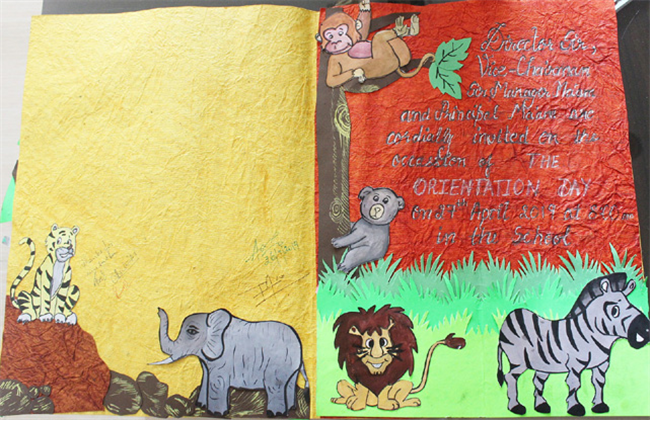 Director Sir,
Vice-Chairman
Sir, Manager Ma'am
and Principal Ma'am are
cordially invited on the
occasion of THE
ORIENTATION DAY
on 27th April 2019 at
in the School